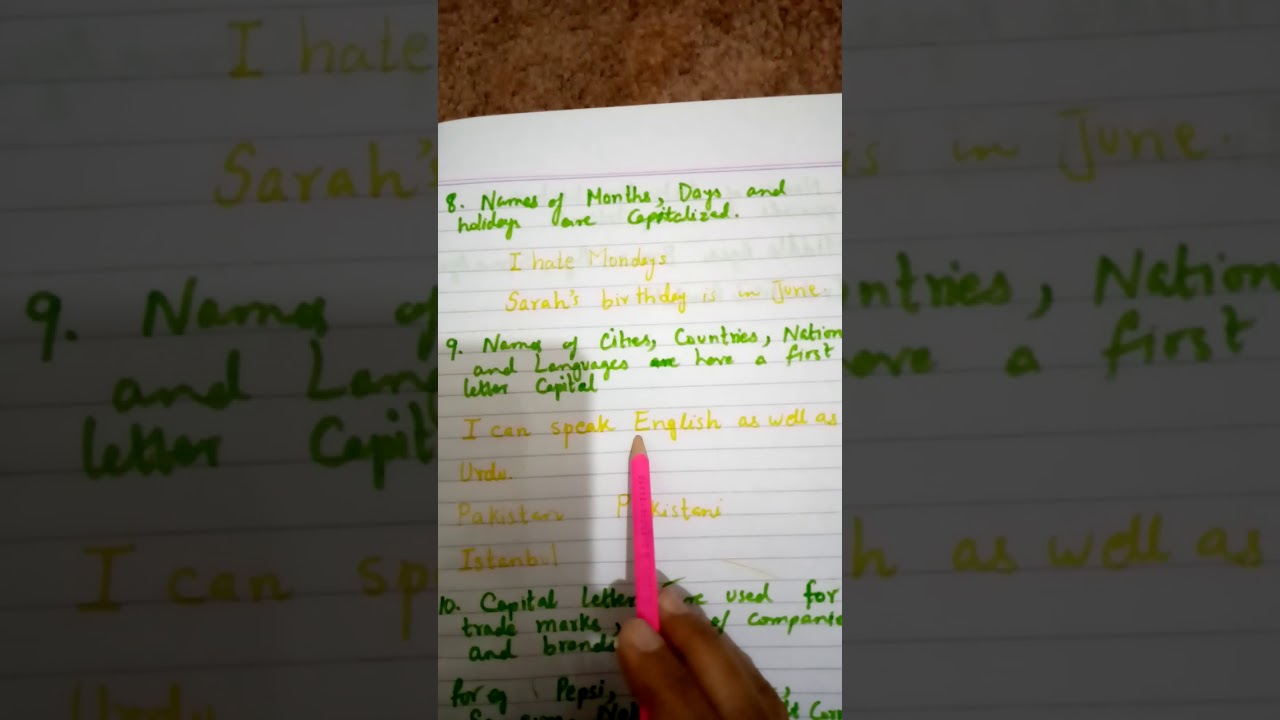 8. Names of Months, Days and
holidays are Capitalized.
I hate Mondays
Sarah's birthday is in June.
9. Names of Cities, Countries, Nation
and Languages are have a first
letter Capital
I can speak English as well as
Urdu.
Pakistan Pakistani
Istanbul
10. Capital letter are used for
trade marks, of companie
and brands
for eg Pepsi,